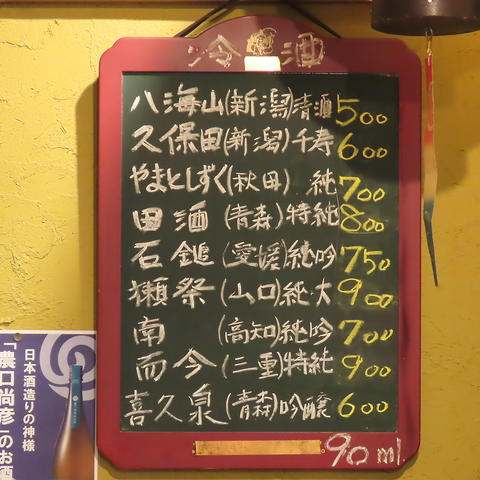 冷酒
八海山(新潟)清酒 500
久保田(新潟)千寿 600
やまとしずく(秋田) 純 700
田酒 (青森)特純 800
石鎚 (愛媛)純吟 750
獺祭 (山口)純大 900
南 (高知)純吟 700
而今 (三重)特純 900
喜久泉 (青森)吟醸 600
90ml
日本酒造りの神様
「農口尚彦」のお酒